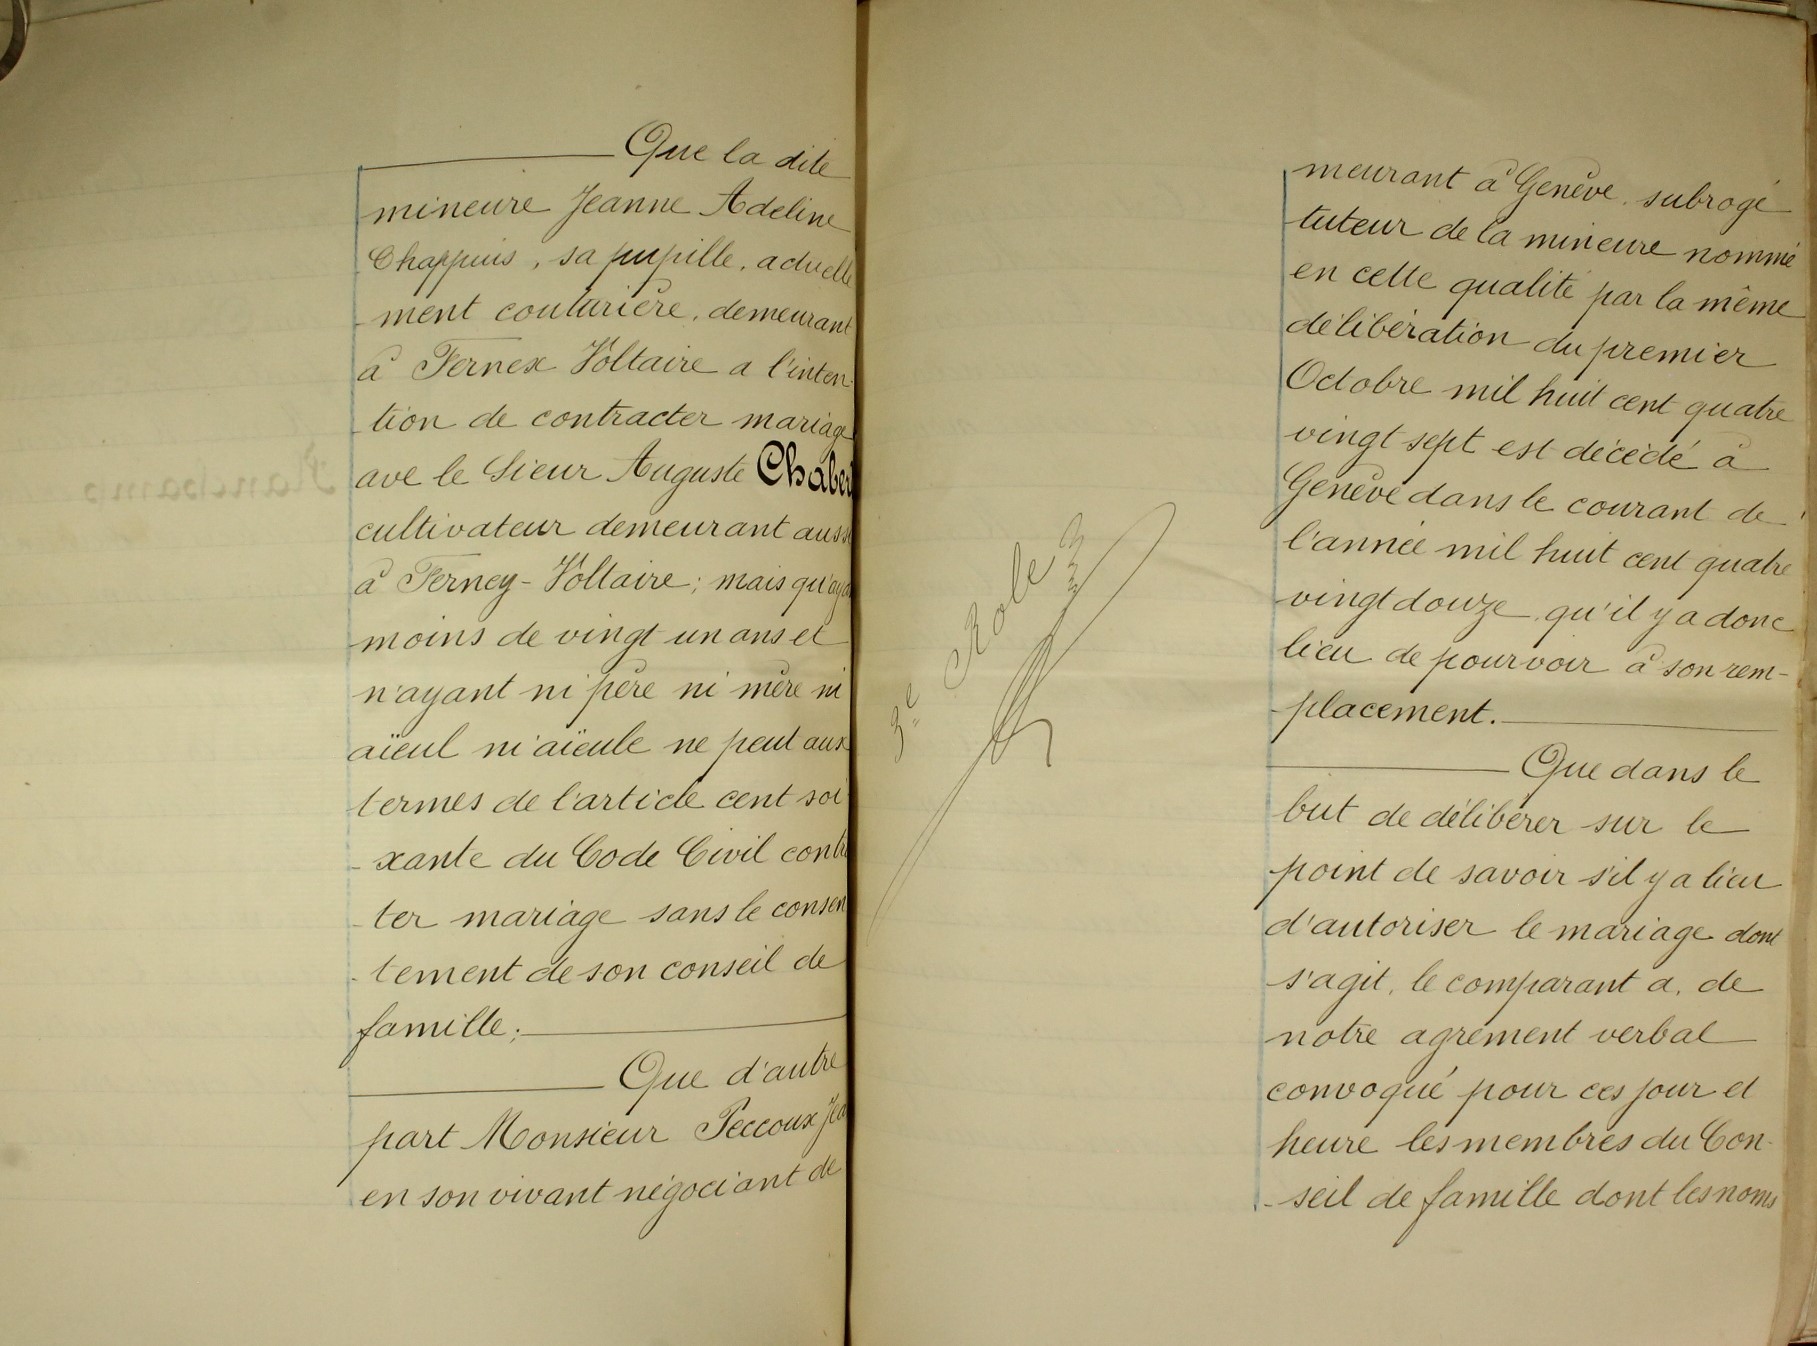 Que la dite
mineure Jeanne Adeline
Chappuis, sa pupille, actuelle
ment couturière, demeurant
à Fernex Voltaire a l'inten-
tion de contracter mariage
ave le Sieur Auguste Chaber
cultivateur demeurant auss
à Ferney-Voltaire; mais qu'aya
moins de vingt un ans et
n'ayant ni père ni mère ni
aïeul ni aïeule ne peut aux
termes de l'article cent soi
xante du Code Civil contr
ter mariage sans le consen
tement de son conseil de
famille;
Que d'autre
part Monsieur Peccoux Jea
en son vivant négociant de
3e Role
meurant à Genève, subrogé
tuteur de la mineure nommé
en cette qualité par la même
délibération du premier
Octobre mil huit cent quatre
vingt sept est décédé à
Genève dans le courant de
l'année mil huit cent quatre
vingt douze, qu'il y a donc
lieu de pourvoir à son rem-
placement.
Que dans le
but de délibérer sur le
point de savoir s'il y a lieu
d'autoriser le mariage dont
s'agit, le comparant a, de
notre agrément verbal
convoqué pour ces jour et
heure les membres du Con-
seil de famille dont les noms